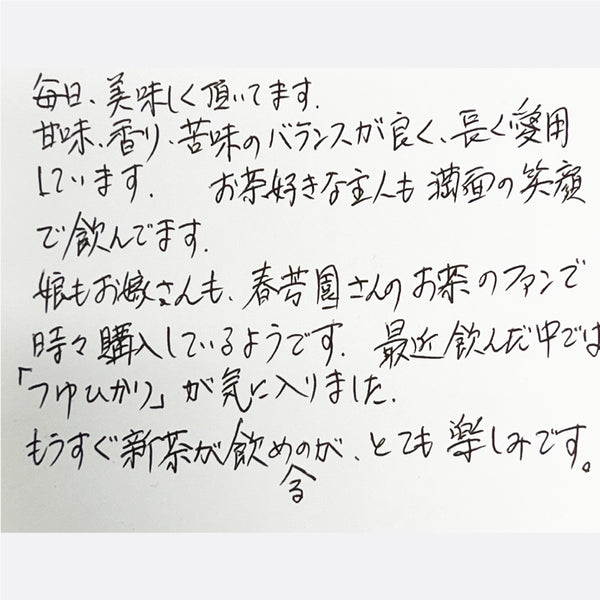 毎日、美味しく頂いてます.
甘味、香り、苦味のバランスが良く、長く愛用
しています. お茶好きな主人も満面の笑顔
で飲んでます.
娘もお嫁さんも、春芳園さんのお茶のファンで
時々購入しているようです. 最近飲んだ中では
「つゆひかり」が気に入りました.
もうすぐ新茶が飲めのが、とても楽しみです。
る